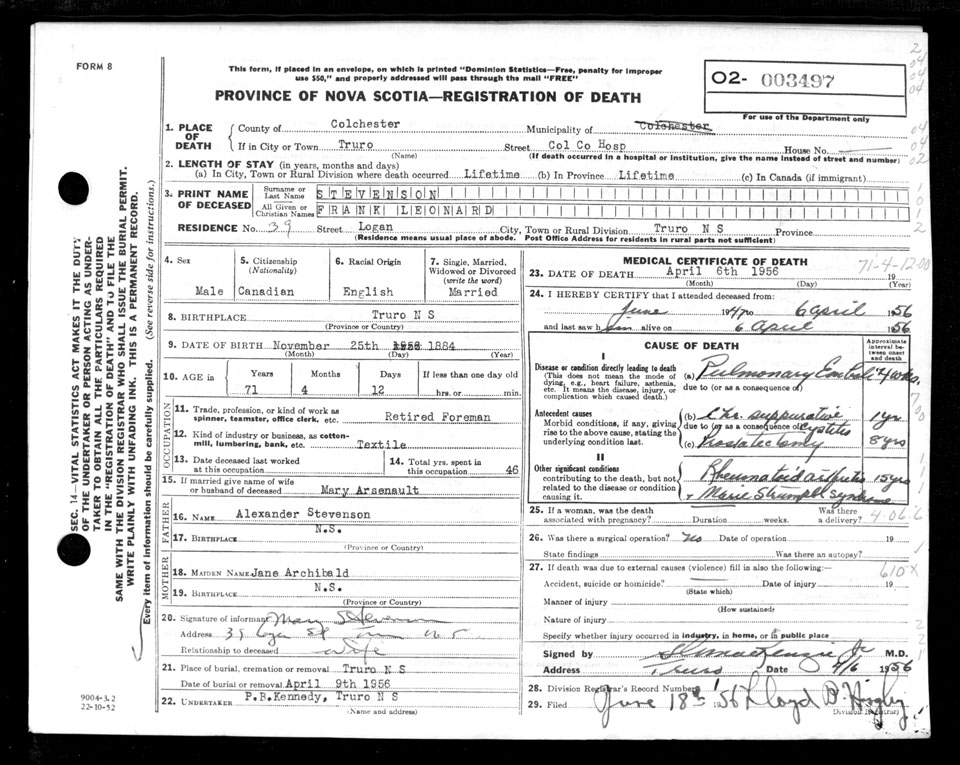 FORM 8
This form, if placed in an envelope, on which is printed "Dominion Statistics—Free, penalty for improper
use $50," and properly addressed will pass through the mail "FREE"
O2- 003497
For use of the Department only
PROVINCE OF NOVA SCOTIA—REGISTRATION OF DEATH
1. PLACE OF DEATH
County of Colchester Municipality of Colchester
If in City or Town Truro Street Col Co Hosp House No.
(Name) (If death occurred in a hospital or institution, give the name instead of street and number)
2. LENGTH OF STAY (in years, months and days)
(a) In City, Town or Rural Division where death occurred Lifetime (b) In Province Lifetime (c) In Canada (if immigrant)
3. PRINT NAME OF DECEASED
Surname or Last Name STEVENSON
All Given or Christian Names FRANK LEONARD
RESIDENCE No. 39 Street Logan City, Town or Rural Division Truro N S Province
(Residence means usual place of abode. Post Office Address for residents in rural parts not sufficient)
4. Sex
Male
5. Citizenship (Nationality)
Canadian
6. Racial Origin
English
7. Single, Married, Widowed or Divorced (write the word)
Married
8. BIRTHPLACE Truro N S
(Province or Country)
9. DATE OF BIRTH November 25th 1884
(Month) (Day) (Year)
10. AGE in
Years Months Days If less than one day old
71 4 12 hrs. or min.
OCCUPATION
11. Trade, profession, or kind of work as spinner, teamster, office clerk, etc. Retired Foreman
12. Kind of industry or business, as cotton-mill, lumbering, bank, etc. Textile
13. Date deceased last worked at this occupation
14. Total yrs. spent in this occupation 46
15. If married give name of wife or husband of deceased Mary Arsenault
FATHER
16. NAME Alexander Stevenson
17. BIRTHPLACE N.S.
(Province or Country)
MOTHER
18. MAIDEN NAME Jane Archibald
19. BIRTHPLACE N.S.
(Province or Country)
20. Signature of informant Mary Stevenson
Address 39 Logan St Truro N.S.
Relationship to deceased Wife
21. Place of burial, cremation or removal Truro N S
Date of burial or removal April 9th 1956
22. UNDERTAKER P.B.Kennedy, Truro N S
(Name and address)
MEDICAL CERTIFICATE OF DEATH
71-4-12-00
23. DATE OF DEATH April 6th 1956 19
(Month) (Day) (Year)
24. I HEREBY CERTIFY that I attended deceased from:
June 1947 to 6 April 1956
and last saw him alive on 6 April 1956
CAUSE OF DEATH
Approximate interval between onset and death
I
Disease or condition directly leading to death
(This does not mean the mode of dying, e.g., heart failure, asthenia, etc. It means the disease, injury, or complication which caused death.)
(a) Pulmonary Emboli 4 wks.
due to (or as a consequence of)
Antecedent causes
Morbid conditions, if any, giving rise to the above cause, stating the underlying condition last.
(b) Chr. suppurative cystitis 1 yr
due to (or as a consequence of)
(c) Prostatectomy 8 yrs
II
Other significant conditions
contributing to the death, but not related to the disease or condition causing it.
Rheumatoid arthritis 15 yrs
+ Marie Strumpell syndrome
25. If a woman, was the death associated with pregnancy? Duration weeks. Was there a delivery?
26. Was there a surgical operation? No Date of operation 19
State findings Was there an autopsy?
27. If death was due to external causes (violence) fill in also the following:—
610X
Accident, suicide or homicide? Date of injury 19
(State which)
Manner of injury
(How sustained)
Nature of injury
Specify whether injury occurred in industry, in home, or in public place
Signed by MacKenzie M.D.
Address Truro Date 9/6 1956
28. Division Registrar's Record Number
29. Filed June 18th '56 Lloyd B
Division Registrar
SEC. 14—VITAL STATISTICS ACT MAKES IT THE DUTY
OF THE UNDERTAKER OR PERSON ACTING AS UNDER-
TAKER TO OBTAIN ALL THE PARTICULARS REQUIRED
IN THE "REGISTRATION OF DEATH" AND TO FILE THE
SAME WITH THE DIVISION REGISTRAR WHO SHALL ISSUE THE BURIAL PERMIT.
WRITE PLAINLY WITH UNFADING INK. THIS IS A PERMANENT RECORD.
Every item of information should be carefully supplied. (See reverse side for instructions.)
9004-3.2
22-10-52